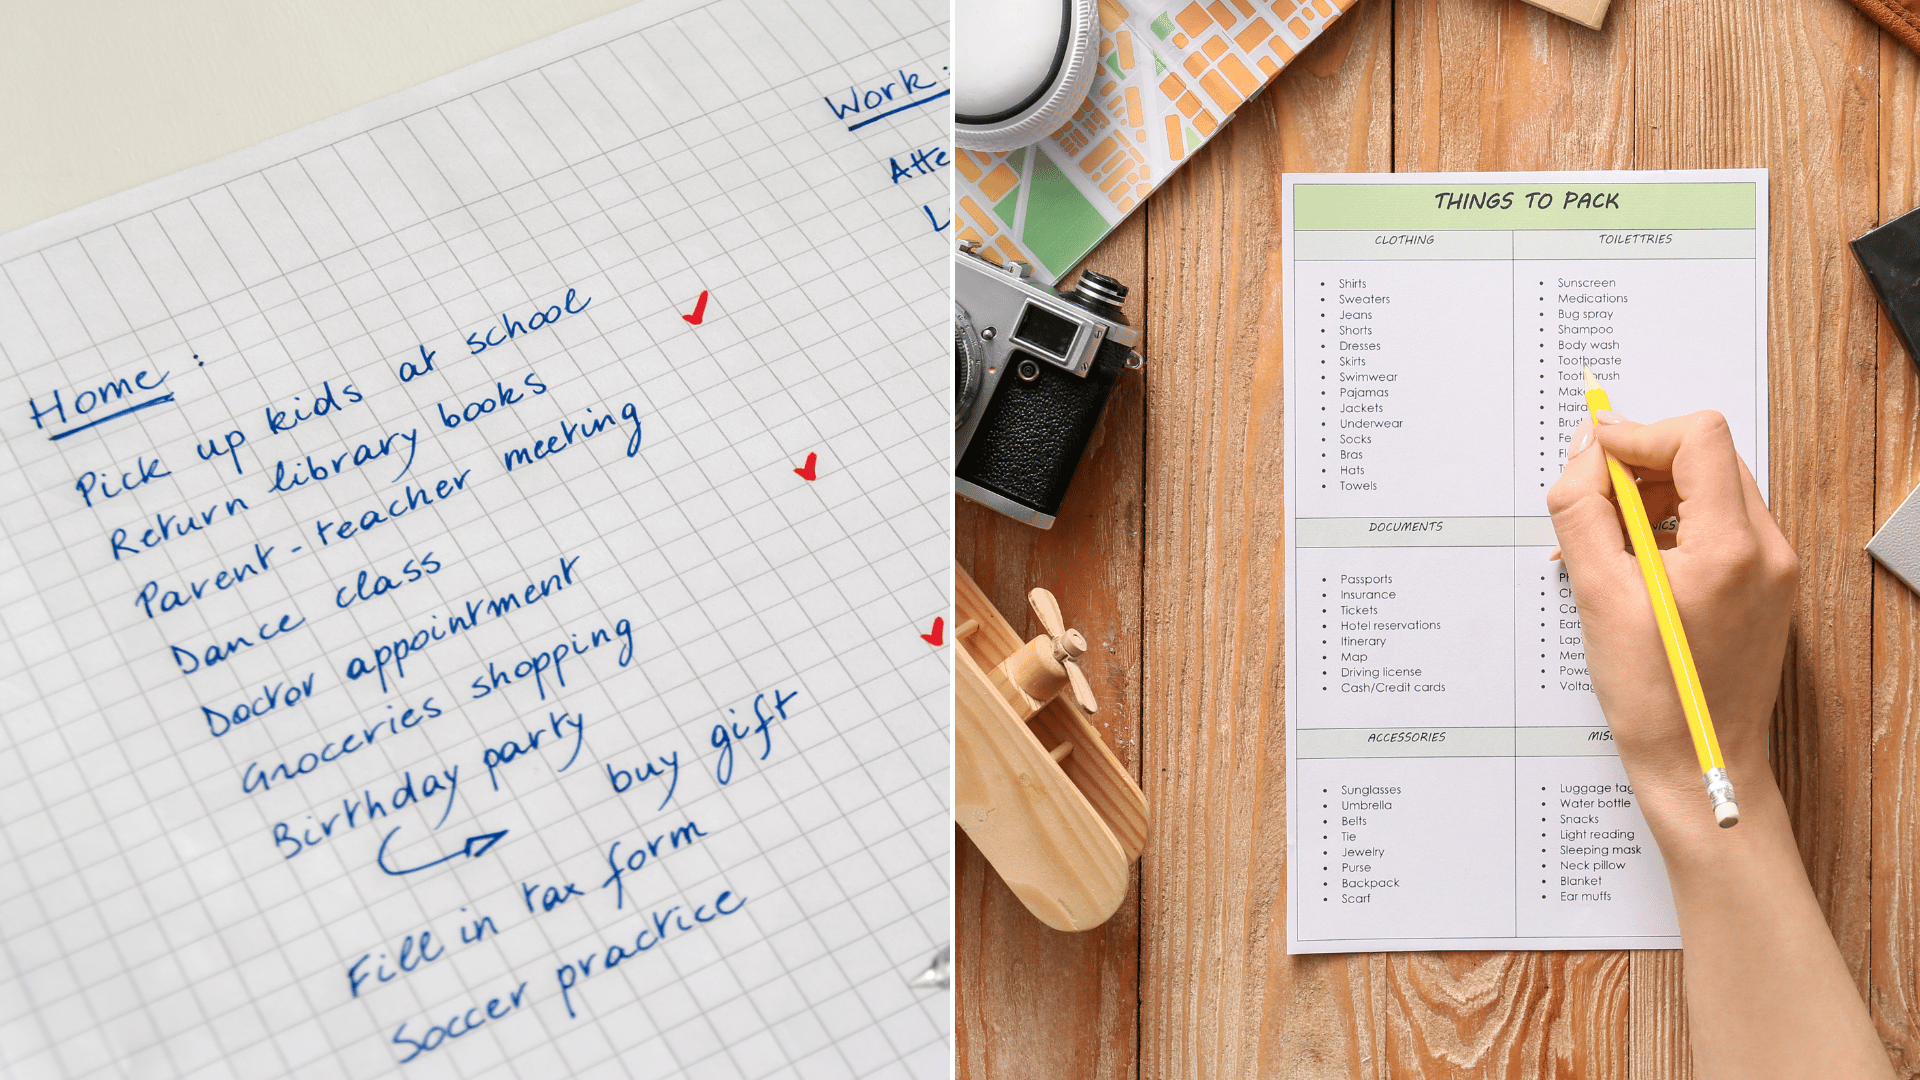 Home :
Pick up kids at school
Return library books
Parent - teacher meeting
Dance class
Doctor appointment
Groceries shopping
Birthday party
buy gift
Fill in tax form
Soccer practice
Work :
THINGS TO PACK
CLOTHING
Shirts
Sweaters
Jeans
Shorts
Dresses
Skirts
Swimwear
Pajamas
Jackets
Underwear
Socks
Bras
Hats
Towels
TOILETTRIES
Sunscreen
Medications
Bug spray
Shampoo
Body wash
Toothpaste
DOCUMENTS
Passports
Insurance
Tickets
Hotel reservations
Itinerary
Map
Driving license
Cash/Credit cards
ACCESSORIES
Sunglasses
Umbrella
Belts
Tie
Jewelry
Purse
Backpack
Scarf
Luggage
Water bottle
Snacks
Light reading
Sleeping mask
Neck pillow
Blanket
Ear muffs